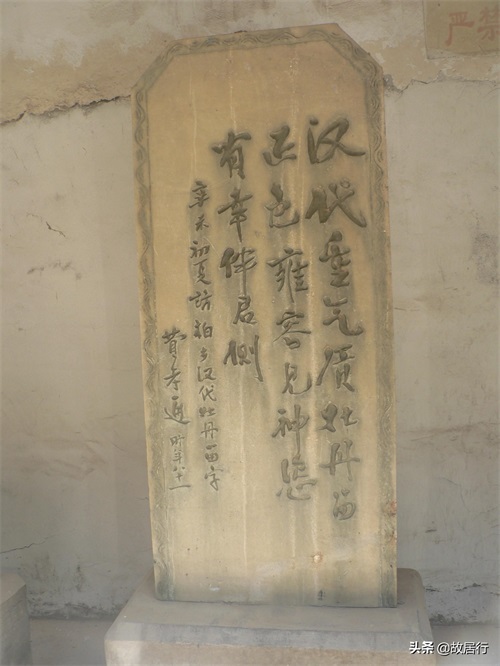 严禁
汉代重气质牡丹留
正色雍容见神态
有幸伴君侧
辛未初夏访柏乡汉代牡丹留字
费孝通 时年八十一
头条 @故居行